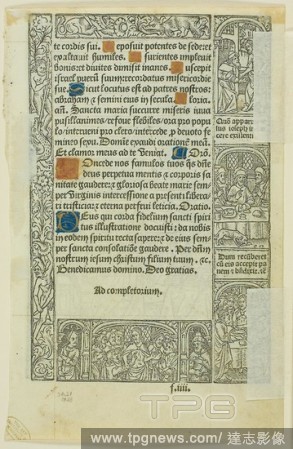 te cordis sui. Deposuit potentes de sedeet
exaltauit humiles. Esurientes impleuit
bonis et diuites dimisit inanes. Suscepit
israel puerū suū: recordatus misericordie
sue. Sicut locutus est ad patres nostros:
abraham et semini eius in secula. Gloria.
añ. Sancta maria succurre miseris iuua
pusillanimes refoue flebiles, ora pro popu
lo, interueni pro clero, intercede p deuoto fe
mineo sexu. Domie exaudi orationē meā.
Et clamor meus ad te veniat. Orō.
Concede nos famulos tuos qs dñe
deus perpetua mentis et corporis sa
nitate gaudere: et gloriosa beate marie sem
per virginis intercessione a presenti liberari
tristicia: et eterna perfrui leticia. Oratio.
Deus qui corda fidelium sancti spiri
tus illustratione docuisti: da nobis
in eodem spiritu recta sapere: et de eius sem
per sancta consolatiōe gaudere. Per dñm
nostrum iesum christum filium tuum. ꝛc.
Benedicamus domino. Deo gratias.
Ad completorium.
f.iiii.
TPG
www.tpgnews.com / 達志影像